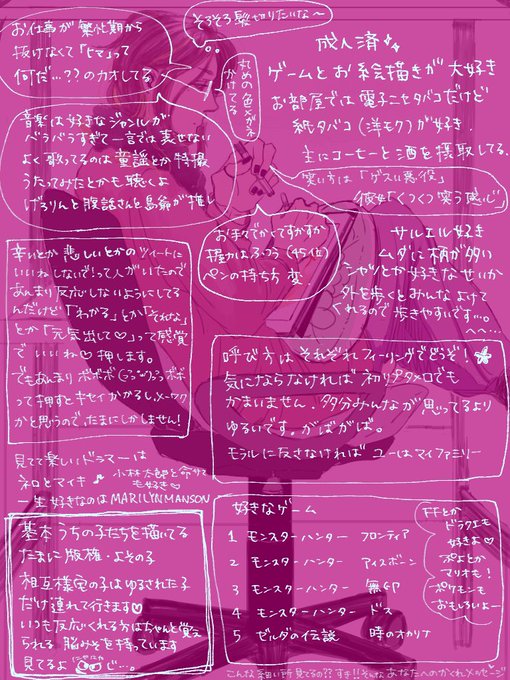 そろそろ髪切りたいな〜
お仕事が繁忙期から
抜けなくて「ヒマ」って
何だ…??のカオしてる
丸めの色メガネ
かけてる
成人済
ゲームとお絵描きが大好き
お部屋では電子ニセタバコだけど
紙タバコ(洋モク)が好き.
主にコーヒーと酒を摂取してる.
笑い方は「ゲスい悪役」
彼女「くつくつ笑う感じ」
音楽は好きなジャンルが
バラバラすぎて一言では表せない
よく歌ってるのは童謡とか特撮
うたってみたとかも聴くよ
げろりんと腹話さんと島爺が推し
お手てでかくてすかすか
握力はふつう(45位)
ペンの持ち方 変
サルエル好き
ムダに柄が多い
シャツとか好きなせいか
外を歩くとみんなよけて
くれるので歩きやすいです…。
へへ…
辛いとか悲しいとかのツイートに
いいねしないでって人がいたので
あんまり反応しないようにしてる
んだけど「わかる」とか「それな」
とか「元気出して♡」って感覚
でいいね♡押します。
でもあんまりボボボボ
って押すとキセイかかるし、メーワク
かと思うので、たまにしかしません!
呼び方はそれぞれフィーリングでどうぞ!
気にならなければ初リプタメ口でも
かまいません.多分みんなが思ってるより
ゆるいです。がばがば。
モラルに反さなければユーはマイファミリー
見てて楽しいドラマーは
ネロとマイキ♪
小林太郎と命サマ
も好き♡
一生好きなのはMARILYN MANSON
基本うちの子たちを描いてる
たまに版権・よその子
相互様宅の子はゆるされた子
だけ連れて行きます♡
いつも反応くれる方はちゃんと覚え
られる脳みそを持っています
見てるよ じ〜。
好きなゲーム
1 モンスターハンター フロンティア
2 モンスターハンター アイスボーン
3 モンスターハンター 無印
4 モンスターハンター ドス
5 ゼルダの伝説 時のオカリナ
FFとか
ドラクエも
好きよ♡
ぷよとか
マリオも!
ポケモンも
おもしろいよー
こんな細い所見てるの??すき!!そんなあなたへのかくれメッセージ